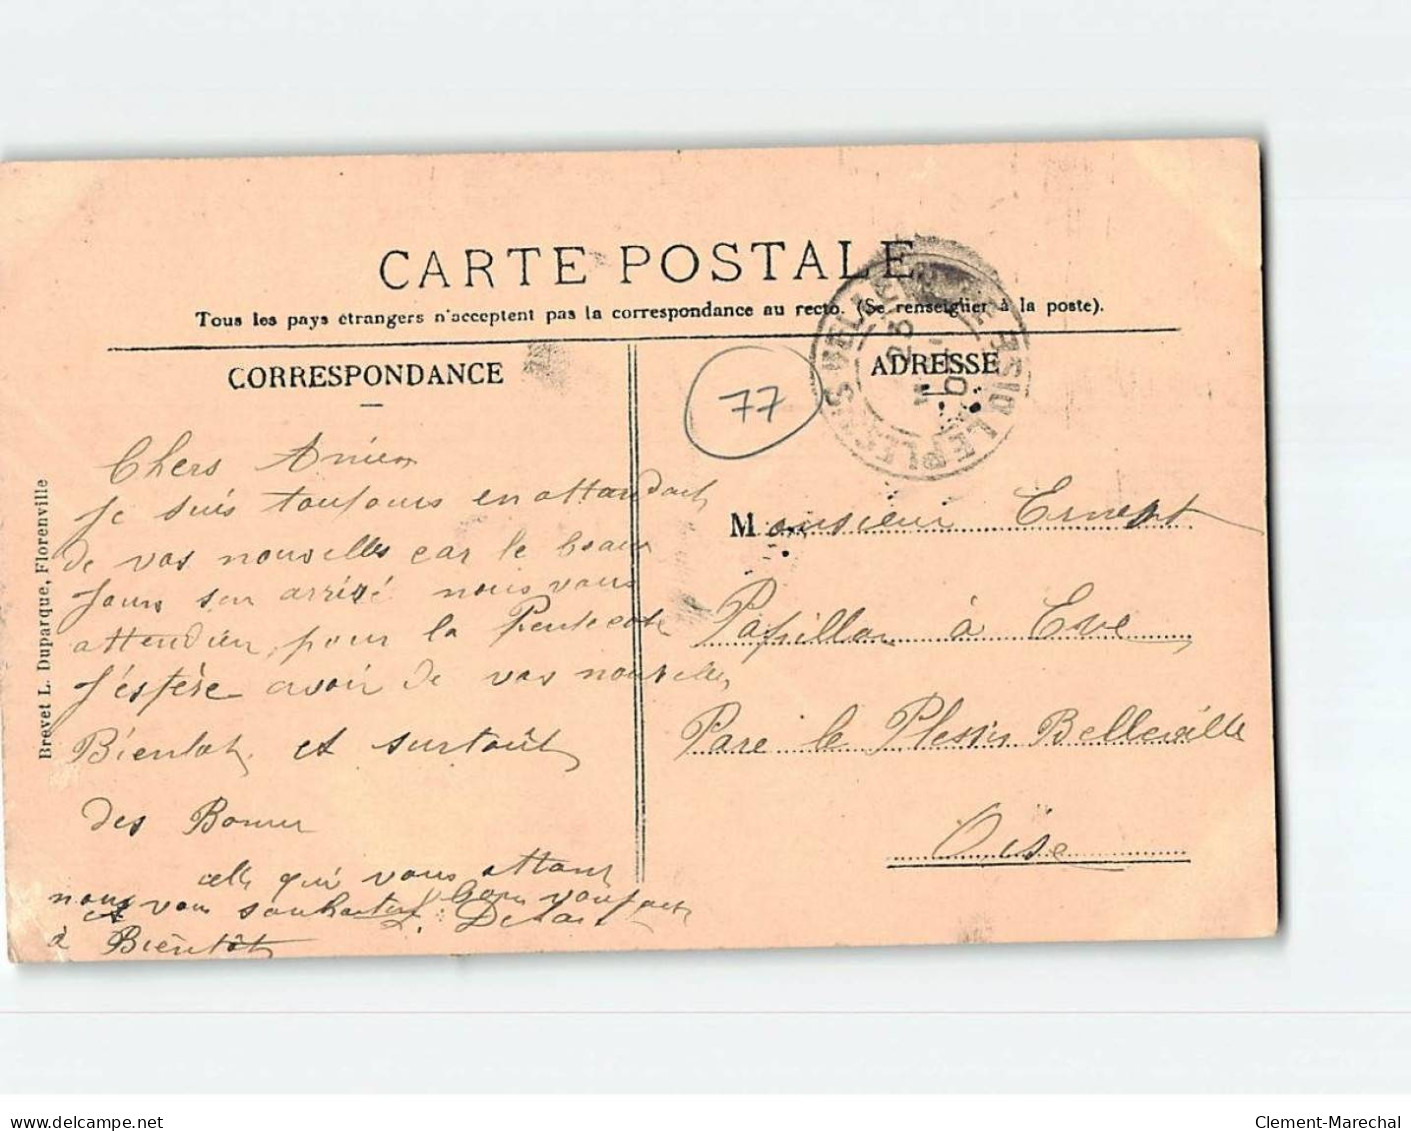 CARTE POSTALE
Tous les pays étrangers n'acceptent pas la correspondance au recto. (Se renseigner à la poste).
CORRESPONDANCE
Chers
Je suis toujours en attandant
de vos nouvelles car le beaux
Jours son arrivé nous vous
attendien pour la Pentecote
J'éspère avoir de vos nouvelles
Bientot et surtoût
des Bonne
celle qui vous attant
nous vous bon
à Bientôt
Brevet L. Duparque, Florenville
77
ADRESSE
LE PLESSIS BELLEVILLE OISE
23
Monsieur Ernest
Papillon à Eve
Pare le Plessis Belleville
Oise
delcampe.net
Clement-Marechal